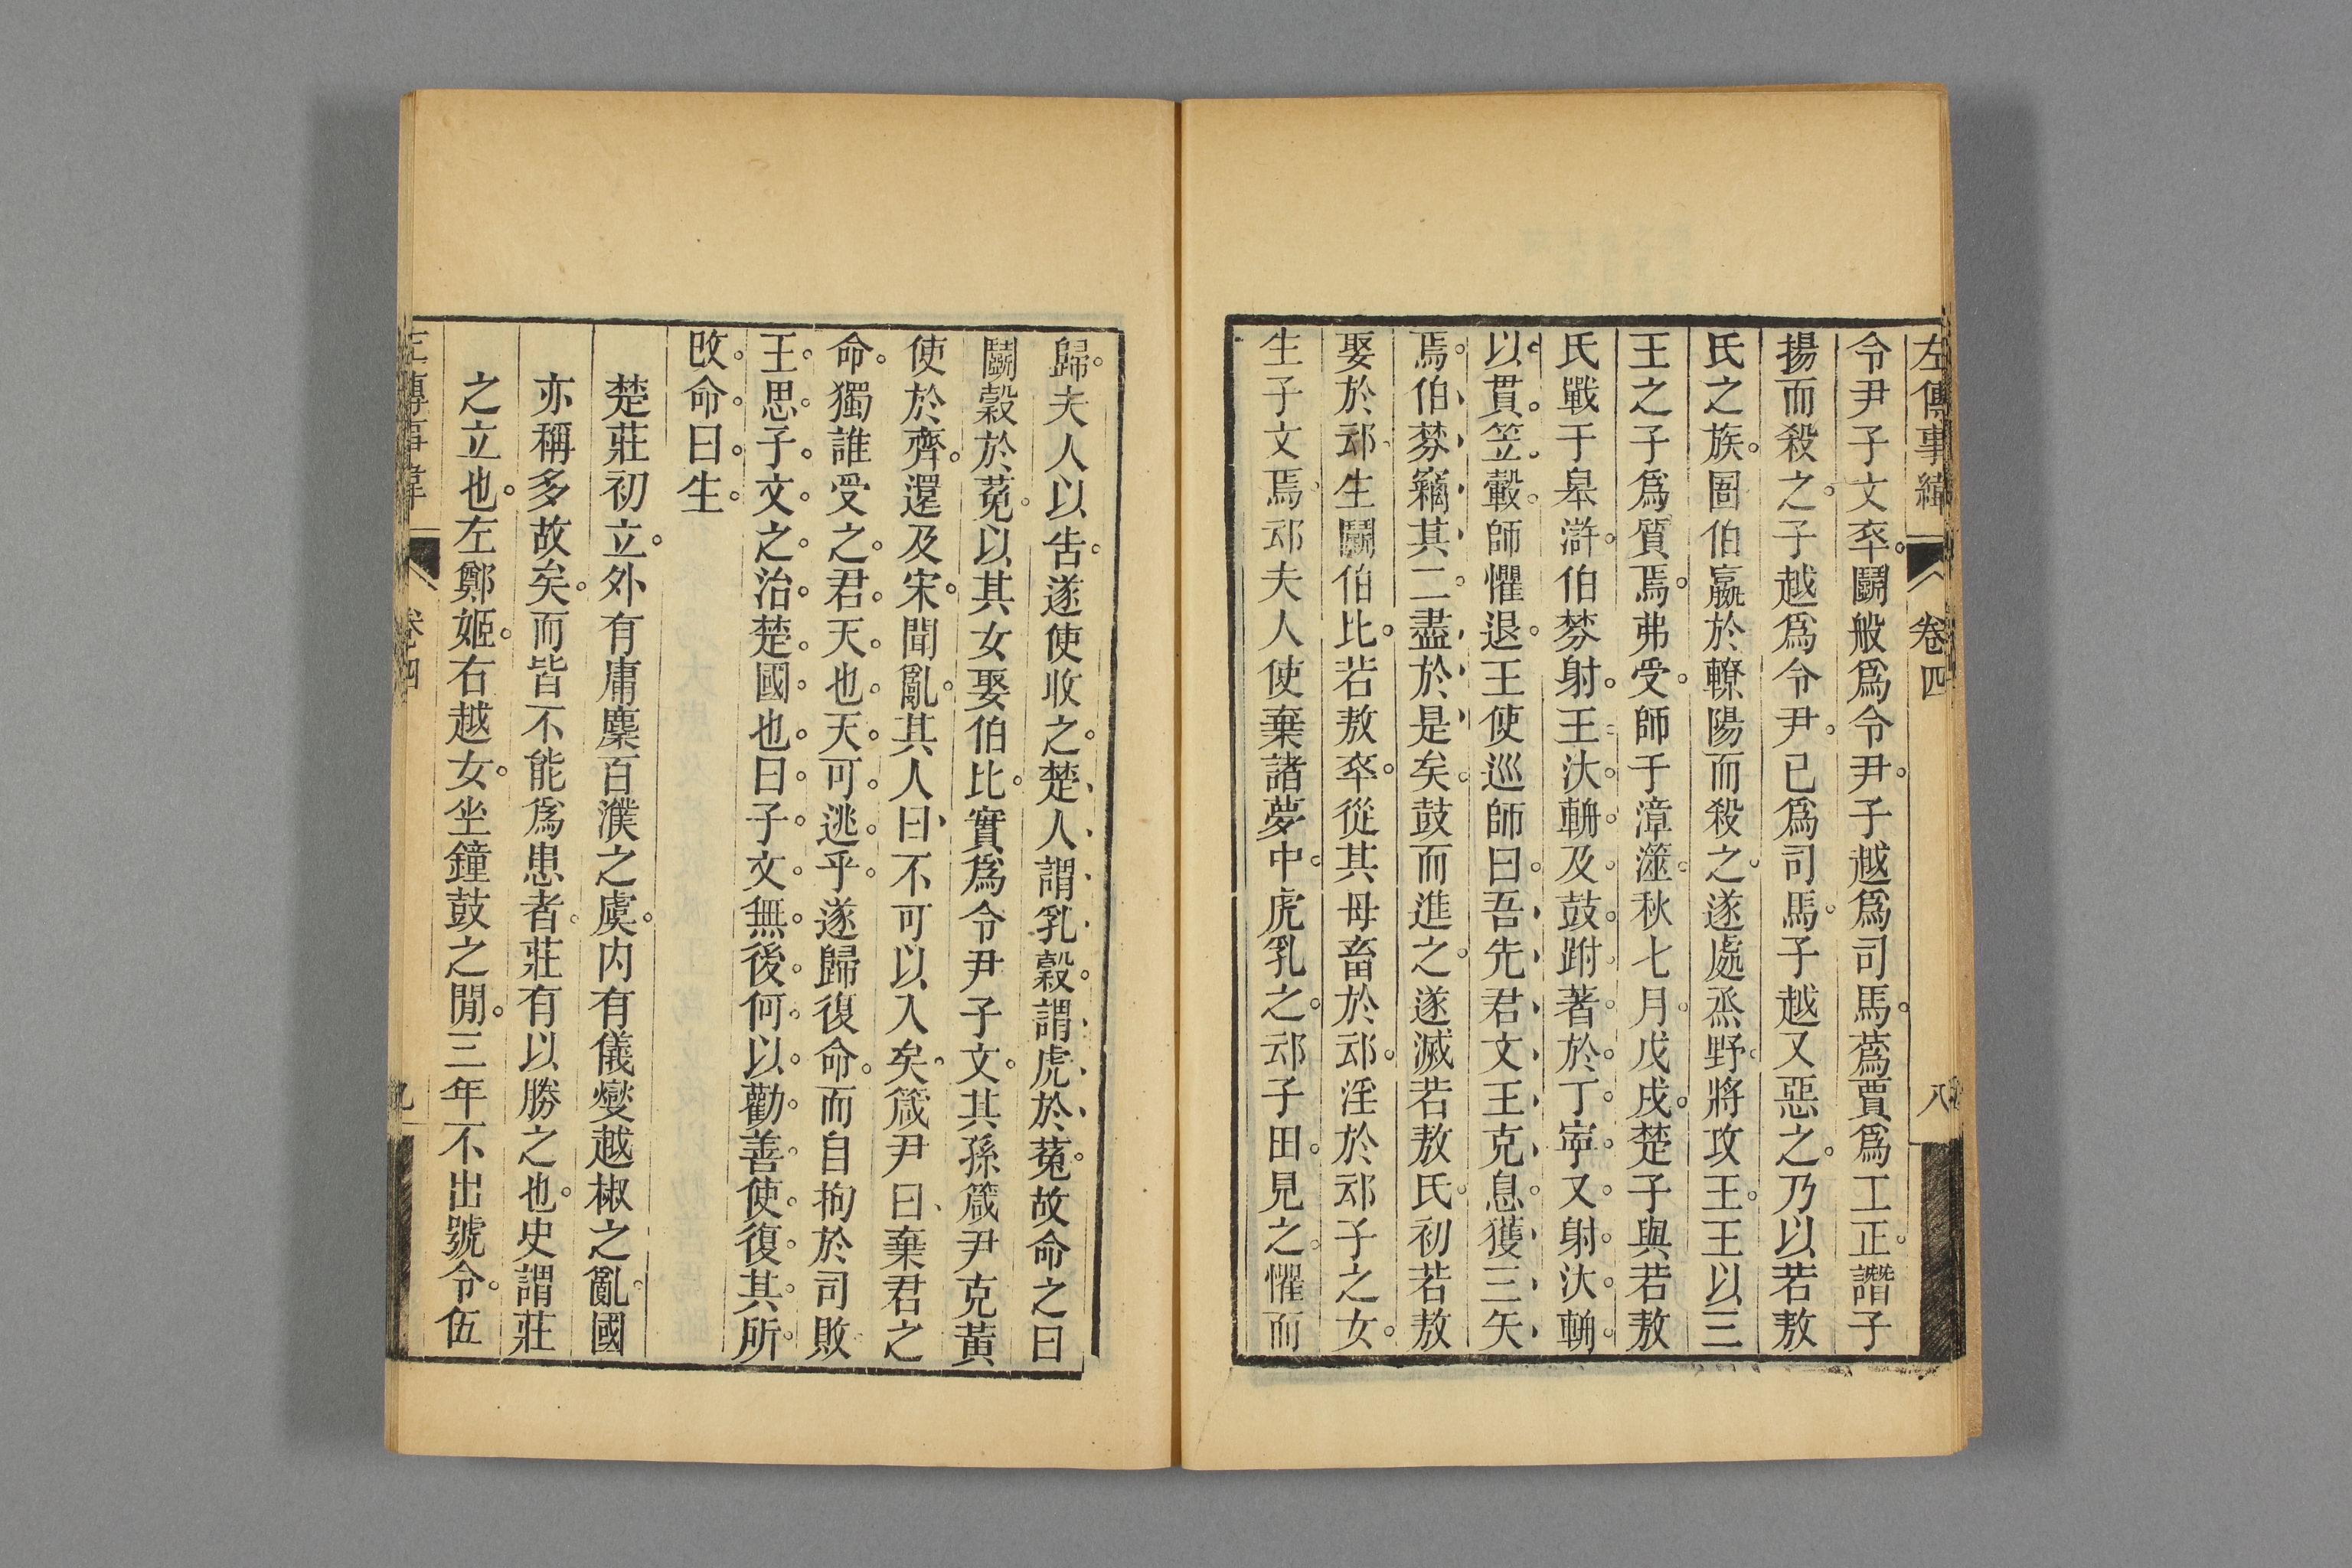 左傳事緯 卷四 八
令尹子文卒鬬般爲令尹子越爲司馬蒍賈爲工正譖子
揚而殺之子越爲令尹已爲司馬子越又惡之乃以若敖
氏之族圄伯嬴於轑陽而殺之遂處烝野將攻王王以三
王之子爲質焉弗受師于漳澨秋七月戊戌楚子與若敖
氏戰于皋滸伯棼射王汏輈及鼓跗著於丁寜又射汏輈
以貫笠轂師懼退王使巡師曰吾先君文王克息獲三矢
焉伯棼竊其二盡於是矣鼓而進之遂滅若敖氏初若敖
娶於䢵生鬬伯比若敖卒從其母畜於䢵淫於䢵子之女
生子文焉䢵夫人使棄諸夢中虎乳之䢵子田見之懼而
歸夫人以告遂使收之楚人謂乳穀謂虎於菟故命之曰
鬬穀於菟以其女娶伯比實爲令尹子文其孫箴尹克黃
使於齊還及宋聞亂其人曰不可以入矣箴尹曰棄君之
命獨誰受之君天也天可逃乎遂歸復命而自拘於司敗
王思子文之治楚國也曰子文無後何以勸善使復其所
改命曰生
楚莊初立外有庸麇百濮之虞内有儀燮越椒之亂國
亦稱多故矣而皆不能爲患者莊有以勝之也史謂莊
之立也左鄭姬右越女坐鐘鼓之閒三年不出號令伍
左傳事緯 卷四 九